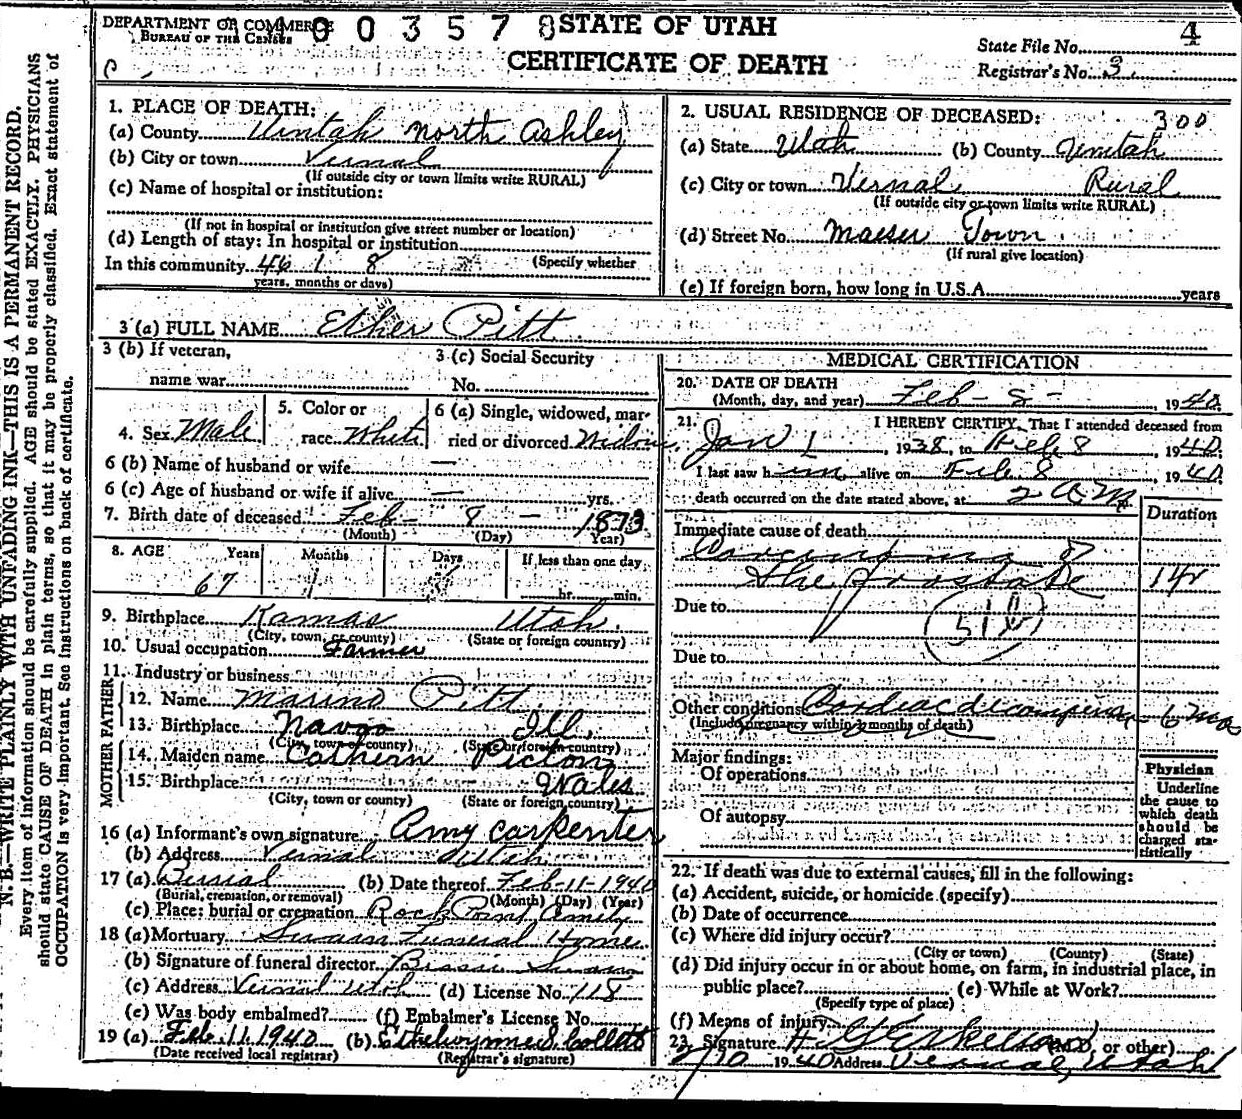 DEPARTMENT OF COMMERCE
BUREAU OF THE CENSUS
003578
STATE OF UTAH
CERTIFICATE OF DEATH
State File No. 4
Registrar's No. 3
N. B.—WRITE PLAINLY WITH UNFADING INK—THIS IS A PERMANENT RECORD.
Every item of information should be carefully supplied. AGE should be stated EXACTLY. PHYSICIANS
should state CAUSE OF DEATH in plain terms, so that it may be properly classified. Exact statement of
OCCUPATION is very important. See instructions on back of certificate.
1. PLACE OF DEATH:
(a) County Uintah North Ashley
(b) City or town Vernal
(If outside city or town limits write RURAL)
(c) Name of hospital or institution:
(If not in hospital or institution give street number or location)
(d) Length of stay: In hospital or institution
(Specify whether
In this community 46 1 8
years, months or days)
2. USUAL RESIDENCE OF DECEASED: 300
(a) State Utah (b) County Uintah
(c) City or town Vernal Rural
(If outside city or town limits write RURAL)
(d) Street No. Maeser Town
(If rural give location)
(e) If foreign born, how long in U.S.A. years
3 (a) FULL NAME Ether Pitt
3 (b) If veteran,
name war
3 (c) Social Security
No.
4. Sex Male
5. Color or
race White
6 (a) Single, widowed, mar-
ried or divorced Widow
6 (b) Name of husband or wife —
6 (c) Age of husband or wife if alive — yrs.
7. Birth date of deceased Feb - 8 - 1873
(Month) (Day) Year)
8. AGE Years Months Days If less than one day
67 hr. min.
9. Birthplace Kamas Utah.
(City, town, or county) (State or foreign country)
10. Usual occupation Farmer
11. Industry or business
FATHER
12. Name Marino Pitt
13. Birthplace Navoo Ill
(City, town or county) (State or foreign country)
MOTHER
14. Maiden name Cathern Picton
15. Birthplace Wales
(City, town or county) (State or foreign country)
16 (a) Informant's own signature Amy Carpenter
(b) Address Vernal Utah
17 (a) Burial (b) Date thereof Feb-11-1940
(Burial, cremation, or removal) (Month) (Day) (Year)
(c) Place: burial or cremation Rock Point
18 (a) Mortuary Swain Funeral Home
(b) Signature of funeral director Swain
(c) Address Vernal Utah (d) License No. 118
(e) Was body embalmed? (f) Embalmer's License No.
19 (a) Feb. 11, 1940 (b) Ethelwynne S. Collett
(Date received local registrar) (Registrar's signature)
MEDICAL CERTIFICATION
20. DATE OF DEATH
(Month, day, and year) Feb - 8 - 1940
21. I HEREBY CERTIFY, That I attended deceased from
Jan 1, 1938, to Feb 8, 1940.
I last saw him alive on Feb 8, 1940
death occurred on the date stated above, at 2 A.M.
Duration
Immediate cause of death
Carcinoma of
the prostate 1 yr
Due to
51 b
Due to
Other conditions Cardiac decompens. 6 mos
(Include pregnancy within 3 months of death)
Major findings:
Of operations
Of autopsy
Physician
Underline
the cause to
which death
should be
charged sta-
tistically
22. If death was due to external causes, fill in the following:
(a) Accident, suicide, or homicide (specify)
(b) Date of occurrence
(c) Where did injury occur?
(City or town) (County) (State)
(d) Did injury occur in or about home, on farm, in industrial place, in
public place? (e) While at Work?
(Specify type of place)
(f) Means of injury
23. Signature or other)
2/10 1940 Address Vernal, Utah